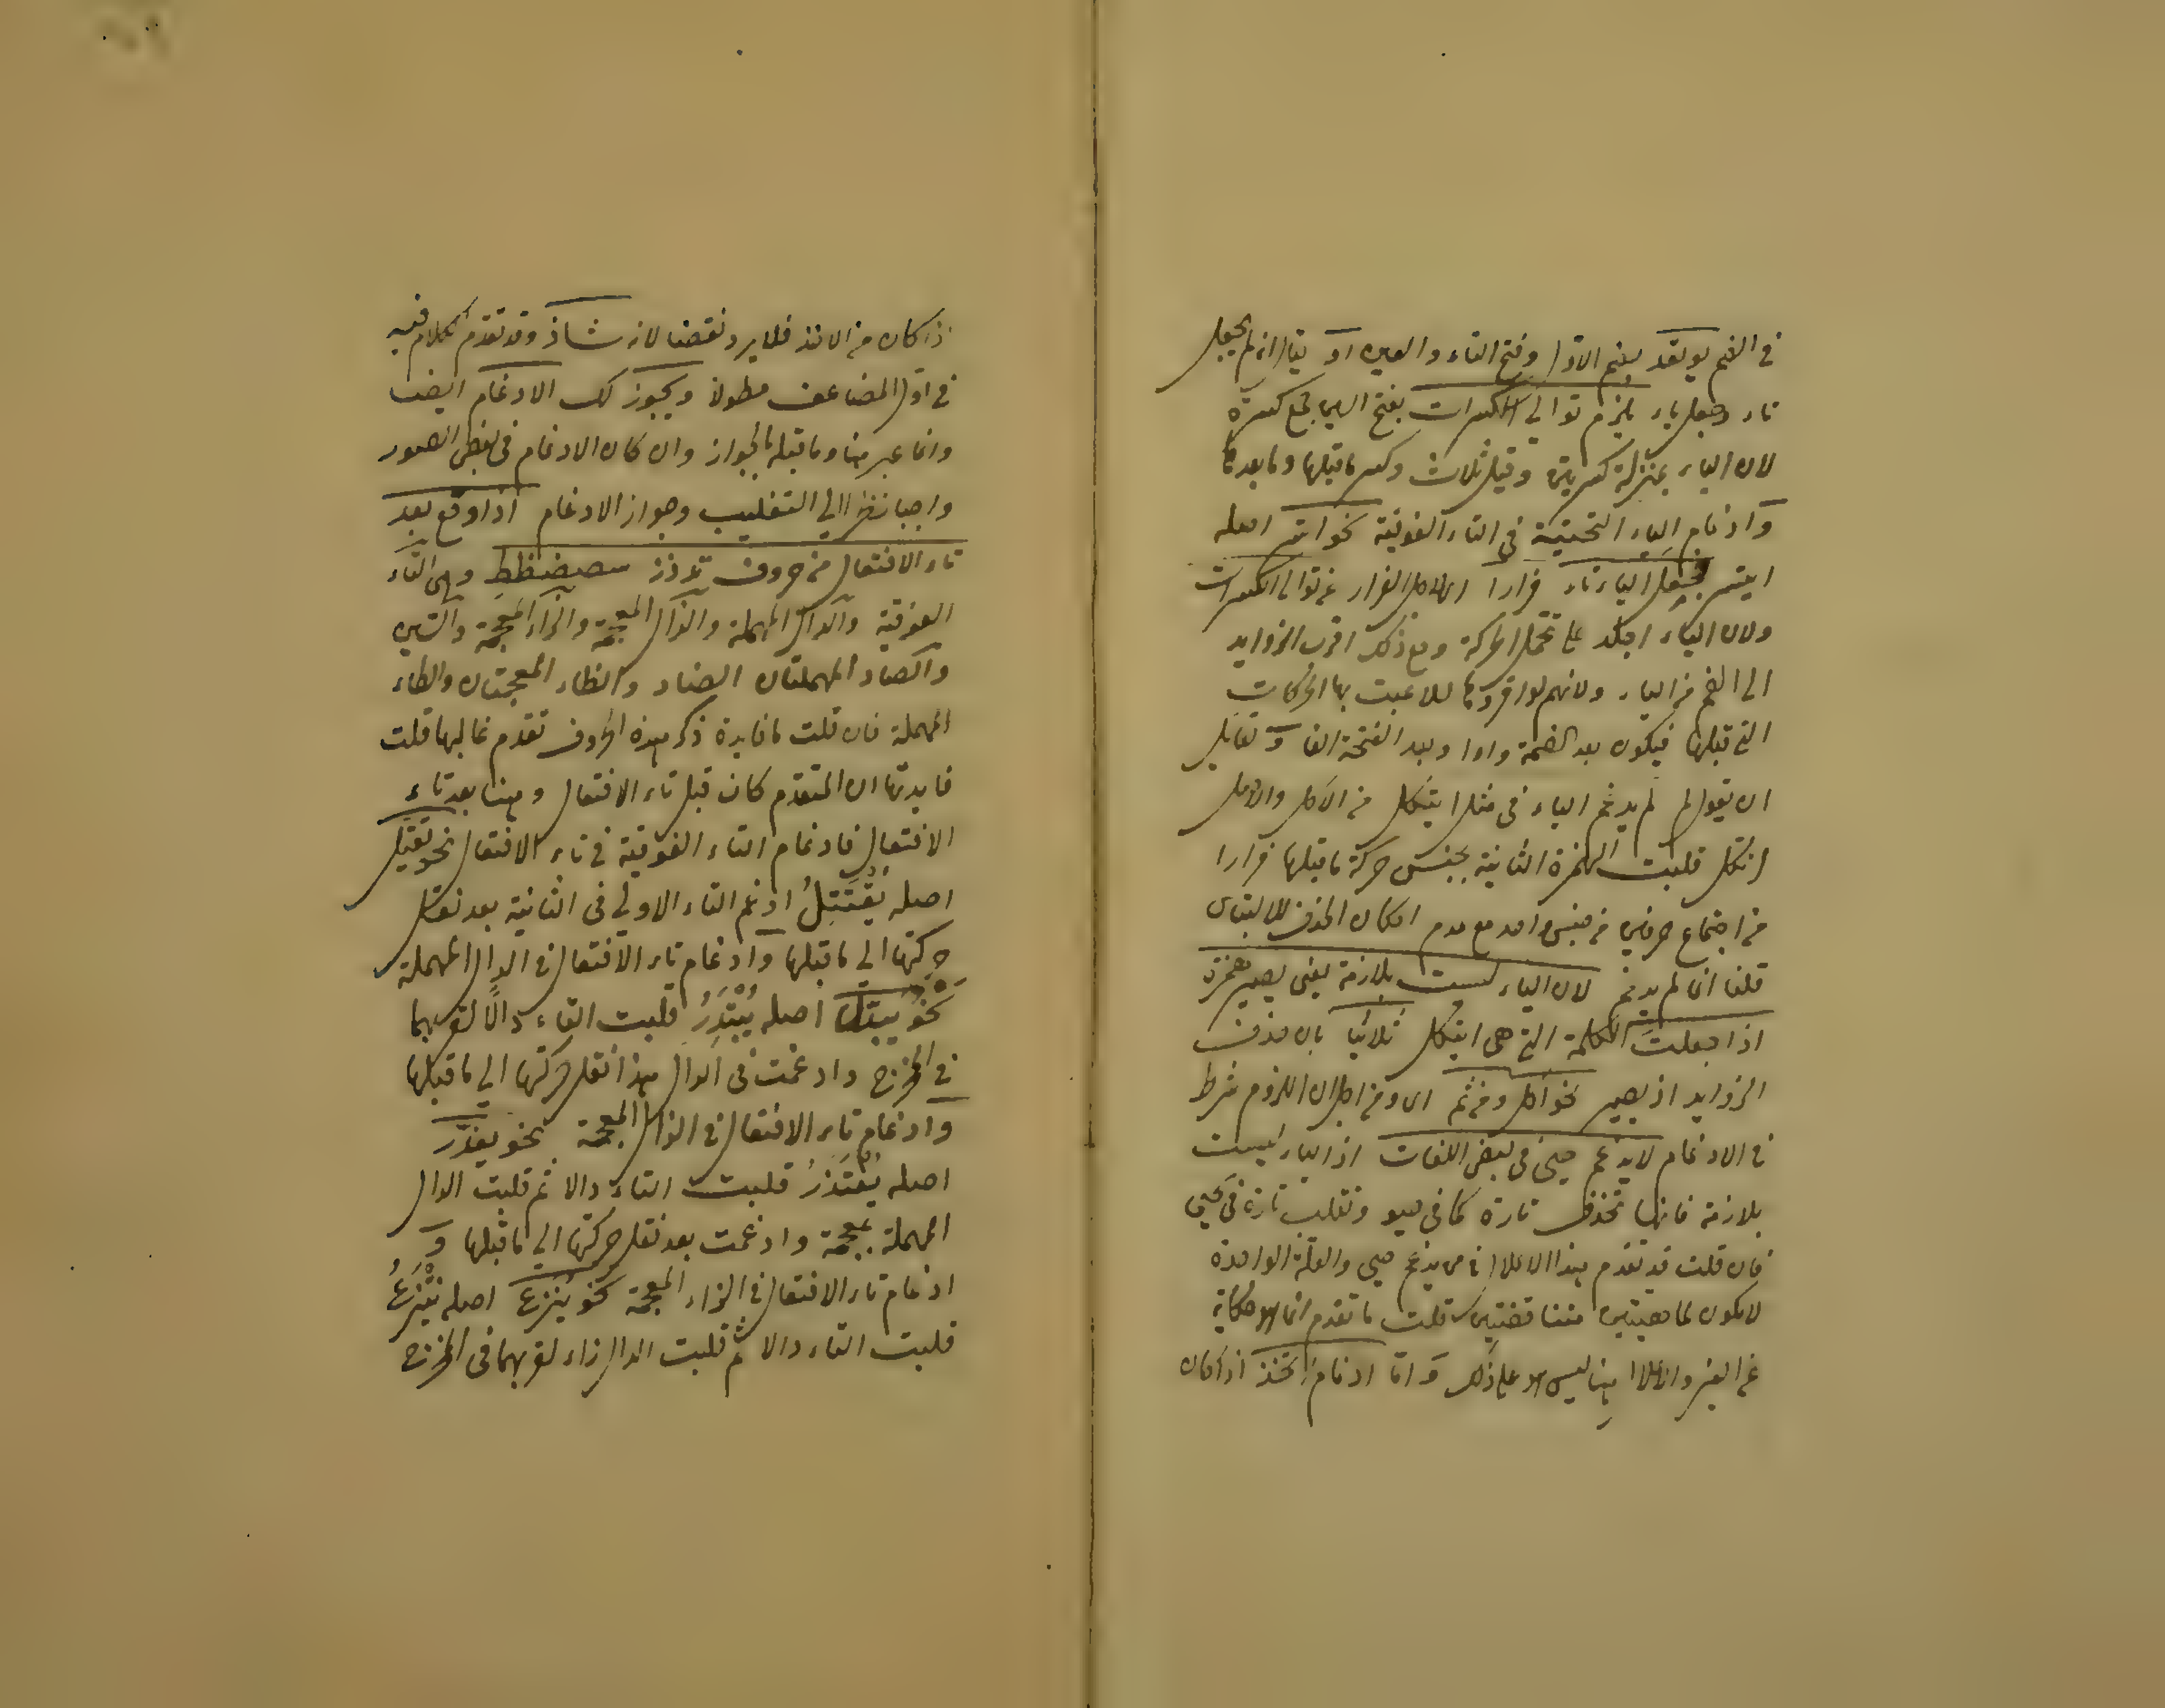 في الضم يوتقد بضم الاول وفتح التاء والعين او يقال ان لم يجعل
تاء وجعل ياء يلزم توالي الكسرات بفتح السين جمع كسرة
لان الياء بمنزلة كسرتين وقيل ثلاث وكسر ما قبلها وما بعدها
وادغام الياء التحتية في التاء الفوقية نحو اتسر اصله
ايتسر فجعل الياء تاء فرارا اى لاجل الفرار عن توالى الكسرات
ولان التاء اجلد على تحمل الحركة ومع ذلك اقرب الزوايد
الى الفم من الياء ولانهم لو اقروها لتلاعبت بها الحركات
التي قبلها فيكون بعد الضمة واوا وبعد الفتحة الفا ولقايل
ان يقول لم لم يدغم الياء في مثل ايتكل من الاكل والاصل
ائتكل قلبت الهمزة الثانية بجنس حركة ما قبلها فرارا
من اجتماع حرفين من جنس واحد مع عدم امكان الحذف للالتباس
قلنا انما لم يدغم لان الياء ليست بلازمة يعنى يصير همزة
اذا جعلت الكلمة التي هي ايتكل ثلاثيا بان حذف
الزوايد اذ يصير نحو اكل ومن ثم اى ومن اجل ان اللزوم شرط
في الادغام لا يدغم حيى في بعض اللغات اذ الياء ليست
بلازمة فانها تحذف تارة كما في حيو وتقلب تارة في يحيى
فان قلت قد تقدم هذا الاعلال في من يدغم حيى والعلة الواحدة
لا يكون لها هيئتين متناقضتين قلت ما تقدم انما هو حكاية
عن الغير والاعلال هنا ليس هو على ذلك واما ادغام اتخذ اذا كان
اذا كان من الاخذ فلا يرد نقضا لانه شاذ وقد تقدم الكلام فيه
في اول المضاعف مطولا ويجوز لك الادغام ايضا
وانما عبر هنا وما قبله بالجواز وان كان الادغام في بعض الصور
واجبا نظرا الي التغليب وجواز الادغام اذا وقع بعد
تاء الافتعال من حروف تدذز سصضظط وهى التاء
الفوقية والدال المهملة والذال المعجمة والزاء المعجمة والسين
والصاد المهملتان الضاد والظاء المعجمتان والطاء
المهملة فان قلت ما فايدة ذكر هذه الحروف تقدم غالبها قلت
فايدتها ان المتقدم كان قبل تاء الافتعال وهنا بعد تاء
الافتعال فادغام التاء الفوقية في تاء الافتعال نحو يقتل
اصله يقتتل ادغم التاء الاولي في الثانية بعد نقل
حركتها الي ما قبلها وادغام تاء الافتعال في الدال المهملة
نحو يبدل اصله يبتدر قلبت التاء دالا لقربهما
في المخرج وادغمت في الدال بهذا نقل حركتها الي ما قبلها
وادغام تاء الافتعال في الذال المعجمة نحو يعذر
اصله يعتذر قلبت التاء دالا ثم قلبت الدال
المهملة معجمة وادغمت بعد نقل حركتها الي ما قبلها و
ادغام تاء الافتعال في الزاء المعجمة نحو ينزع اصله ينتزع
قلبت التاء دالا ثم قلبت الدال زاء لقربهما في المخرج